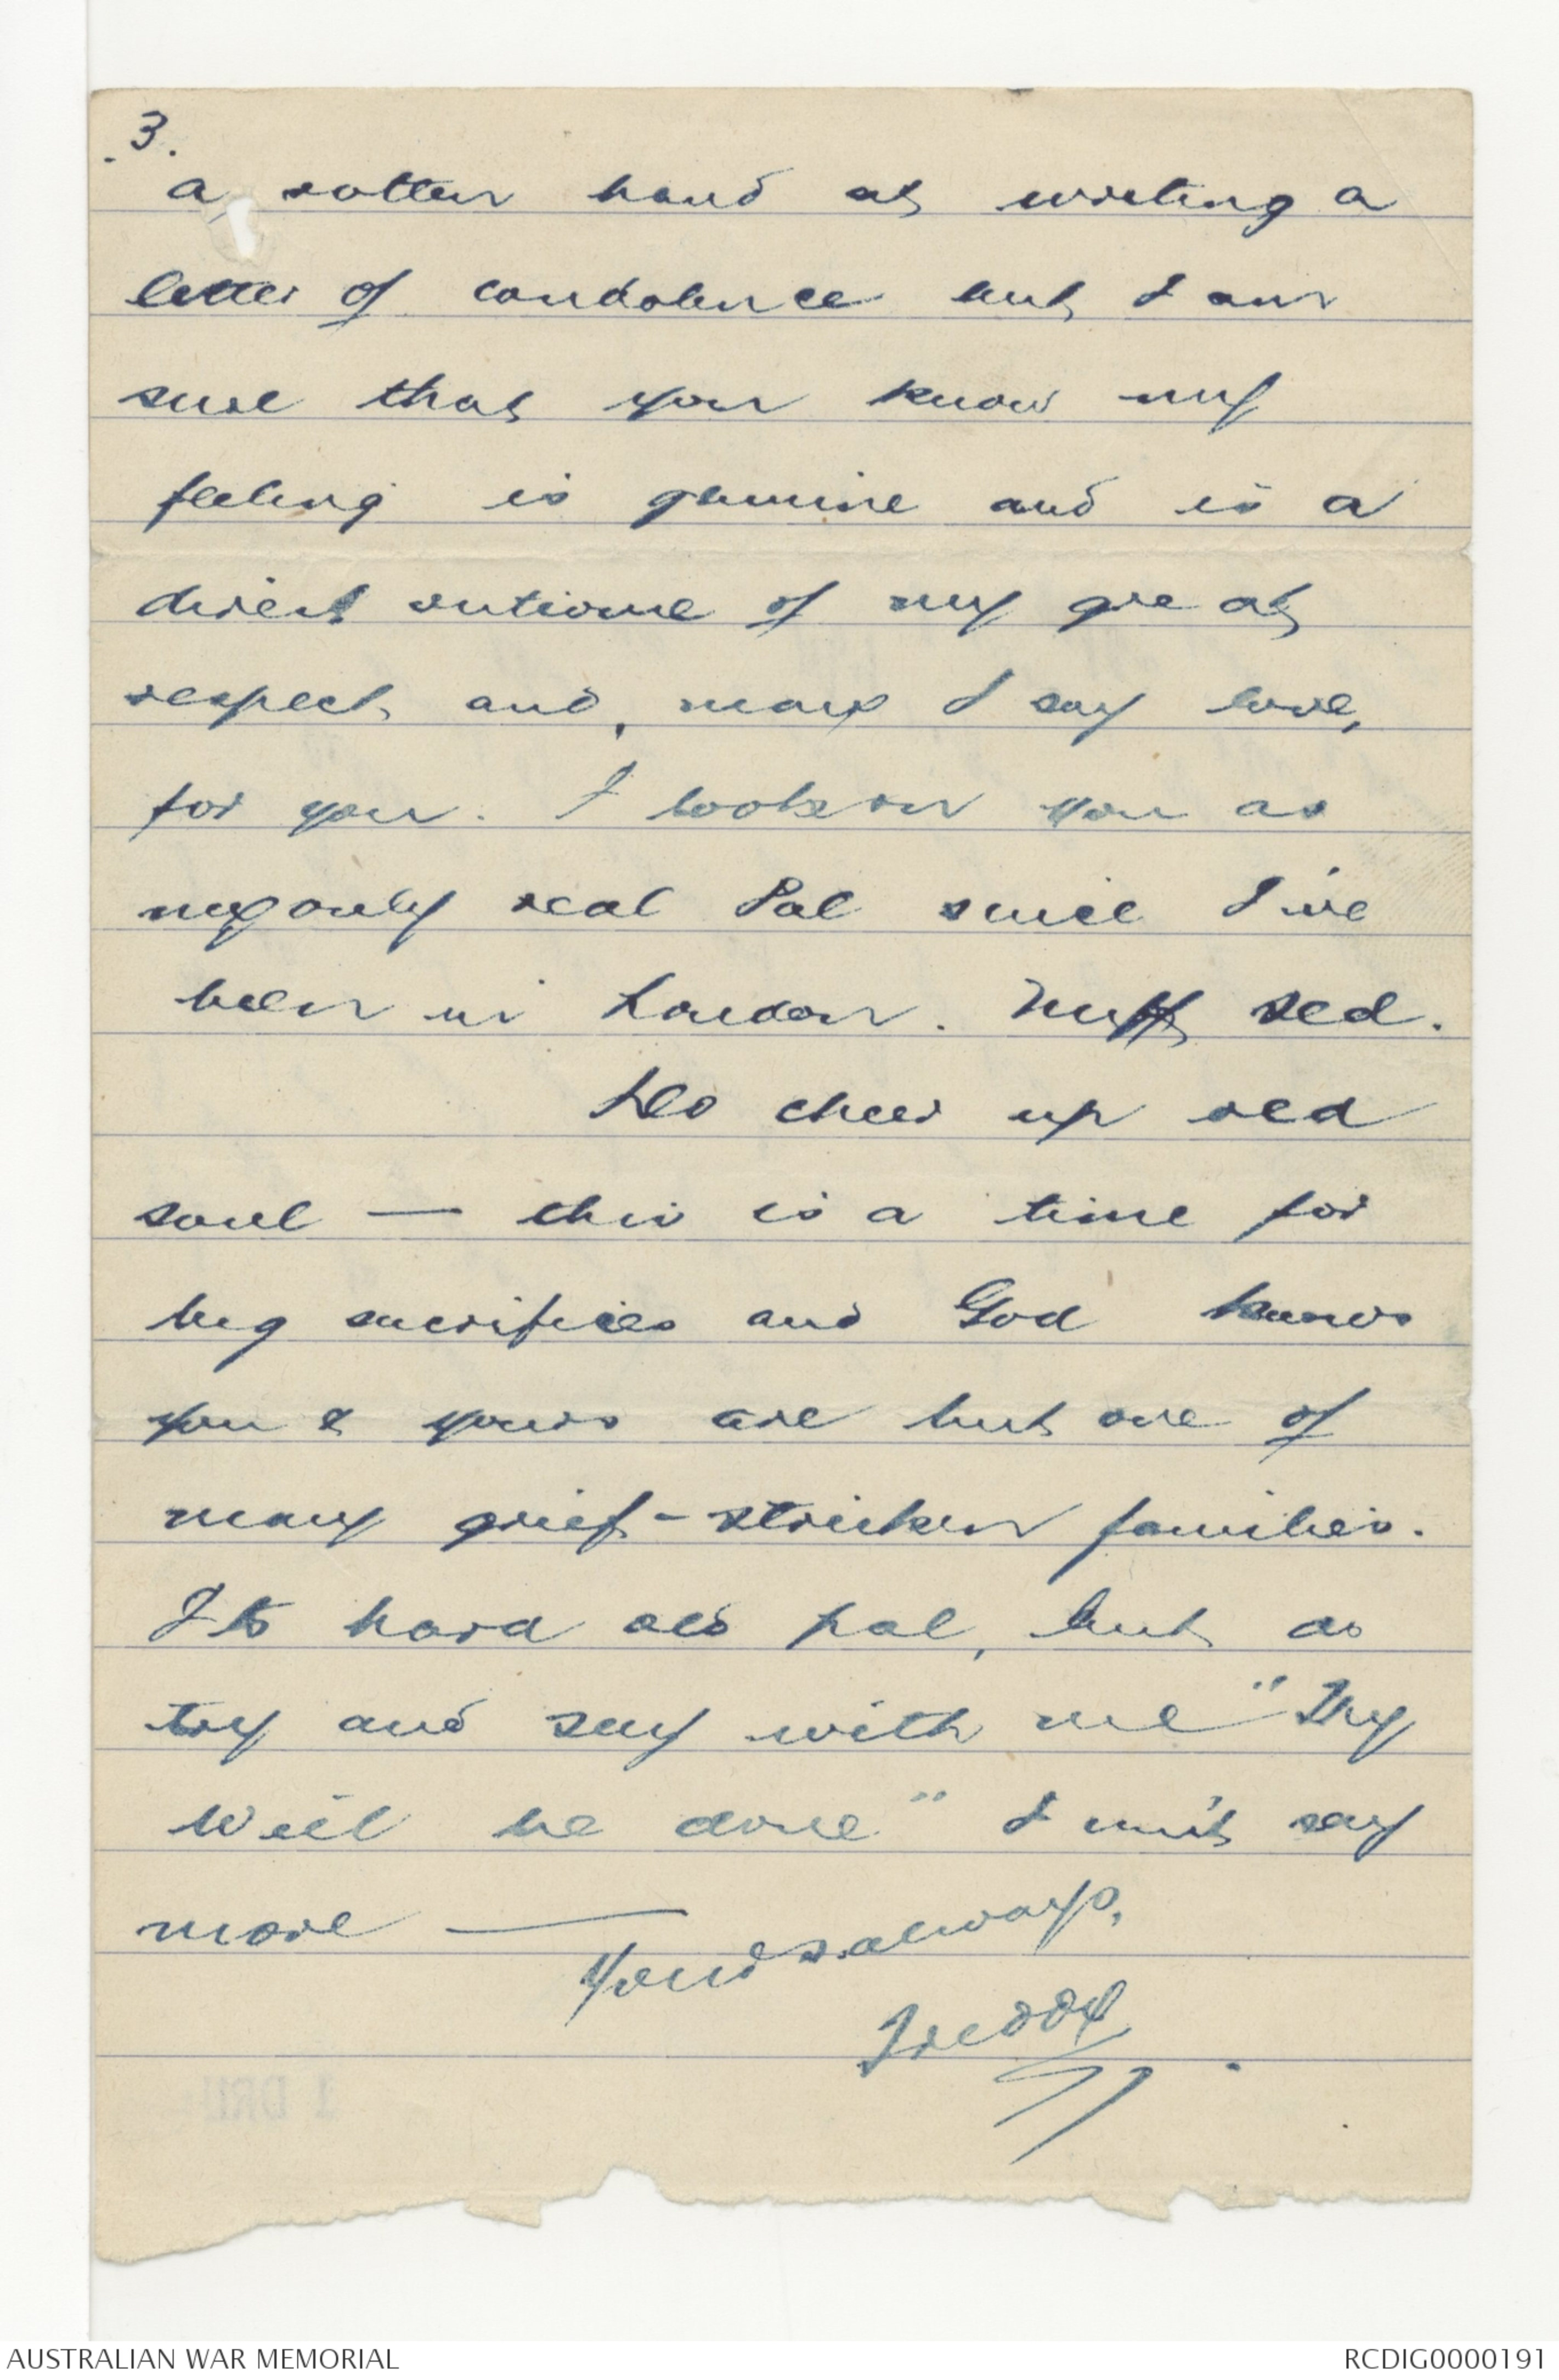 .3.
a rotten hand at writing a
letter of condolence but I am
sure that you know my
feeling is genuine and is a
direct outcome of my great
respect and, may I say love,
for you. I look on you as
my only real Pal since I've
been in London. Nuff sed.
Do cheer up old
soul — this is a time for
big sacrifices and God knows
you & yours are but one of
many grief-stricken families.
Its hard old pal, but do
try and say with me "Thy
Will be done" I won't say
more —
Yours always,
Freddy
AUSTRALIAN WAR MEMORIAL
RCDIG0000191